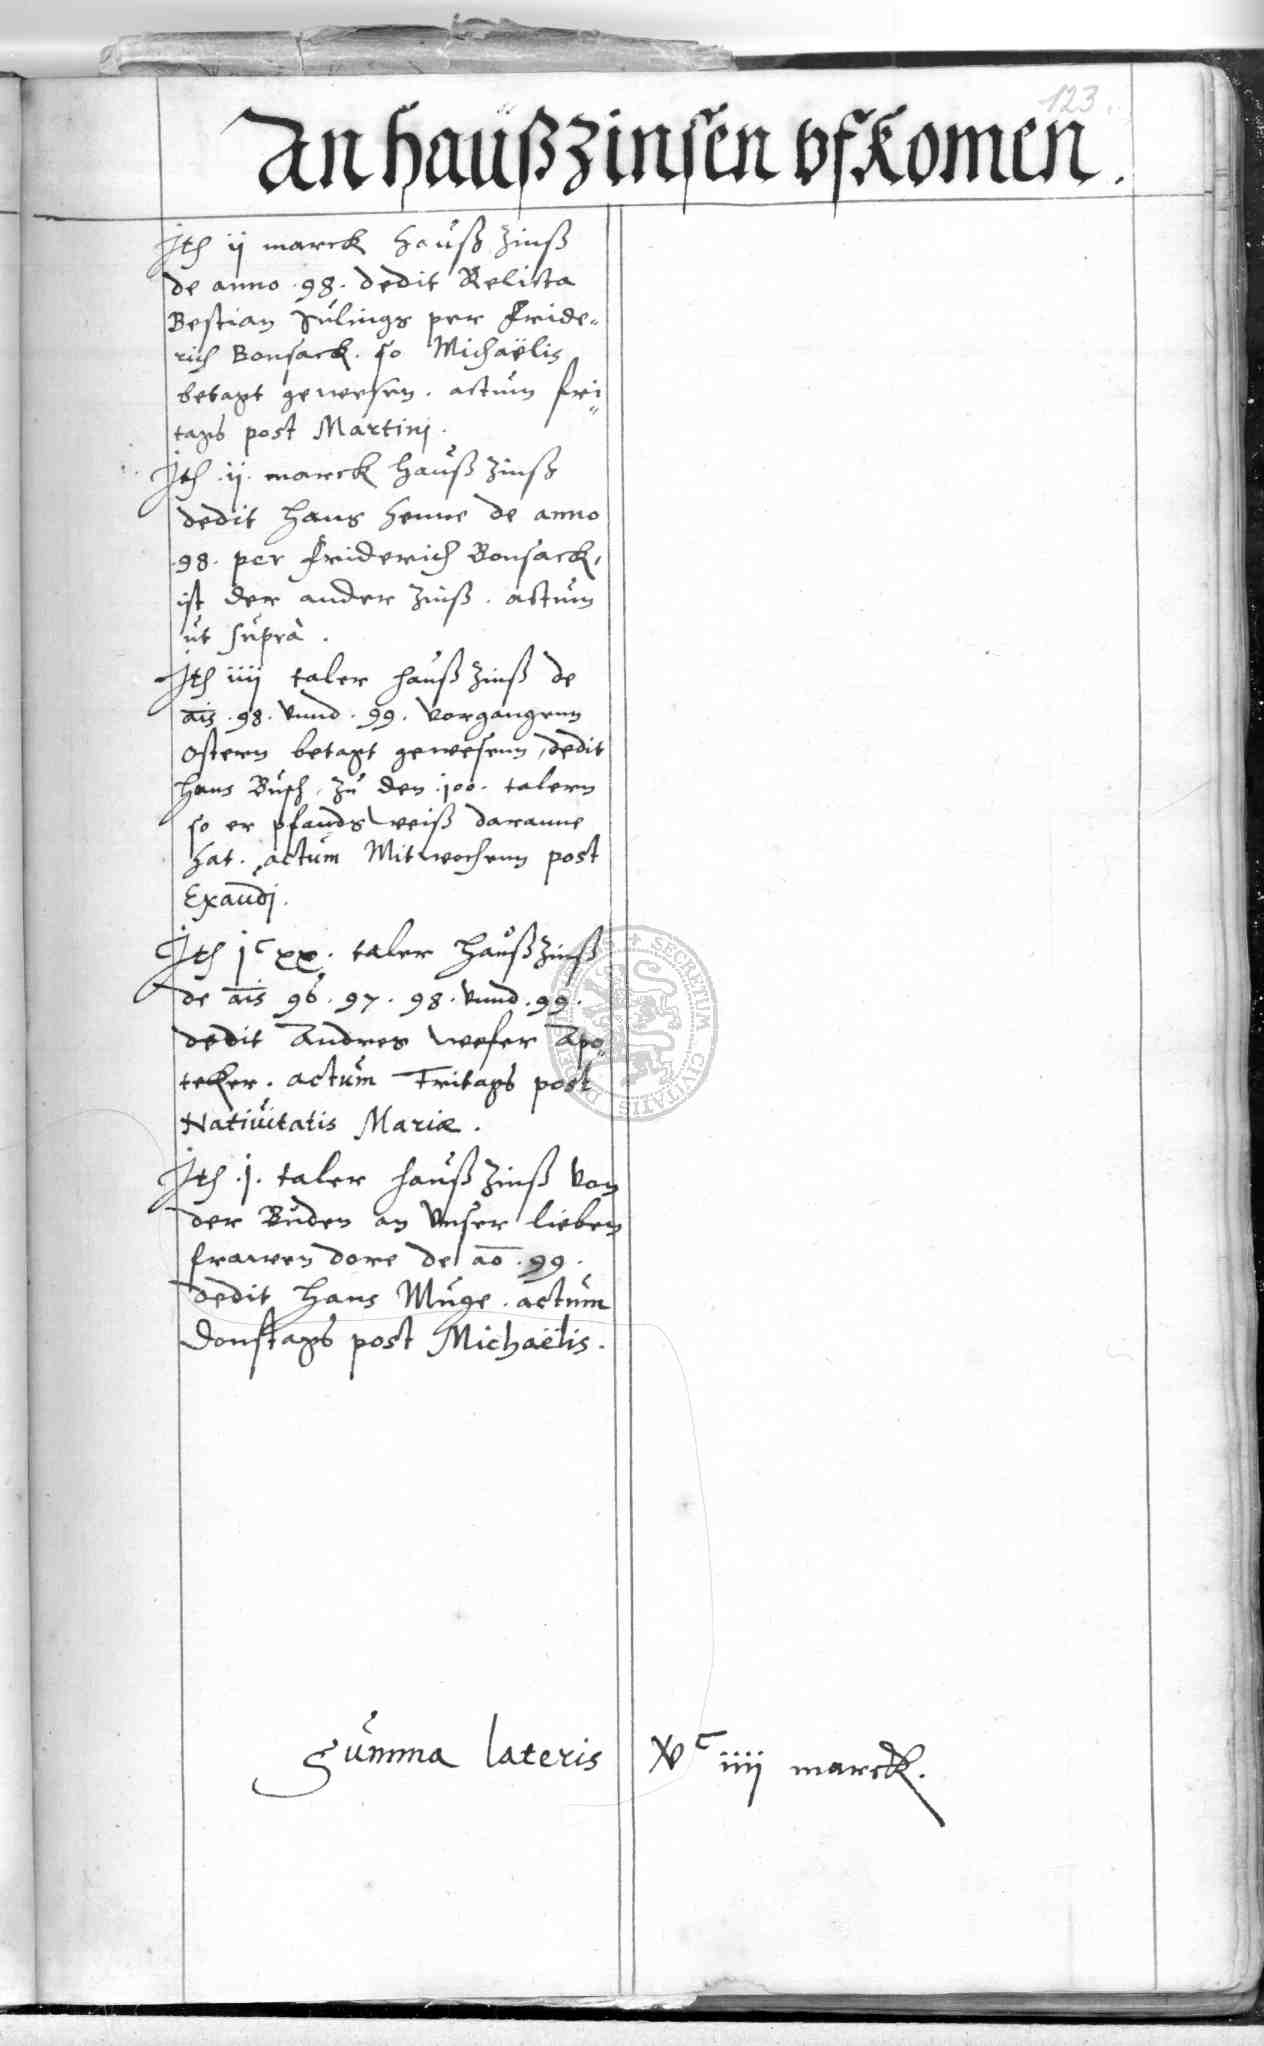 123.
An haußzinsen vfkomen.
Jtem ij marck hauß zinß
de anno .98. dedit Relicta
Bestian Sulings per Fride-
rich Bonsack. so Michaëlis
betagt gewesen. actum fri-
tags post Martinj.
Jtem .ij. marck hauß zinß
dedit Hans Henne de anno
.98. per Friderich Bonsack,
ist der ander zinß. actum
ut suprà.
Jtem iiij taler hauß zinß de
ais .98. vnnd .99. vorgangenn
Ostern betagt gewesenn, dedit
Hans Busch, zu den .100. talern
so er pfands weiß daranne
hat. actum Mitwochenn post
Exaudj.
Jtem jc xx. taler haußzinß
de ais 96. 97. 98. vnnd .99.
dedit Andres Wefer Apo-
teker. actum Fritags post
Natiuitatis Mariæ.
Jtem .j. taler hauß zinß von
der Buden an vnser lieben
frawen dore de ao .99.
dedit Hans Muge. actum
Donstags post Michaëlis.
Summa lateris vc iiij marck.
SECRETUM CIVITATIS